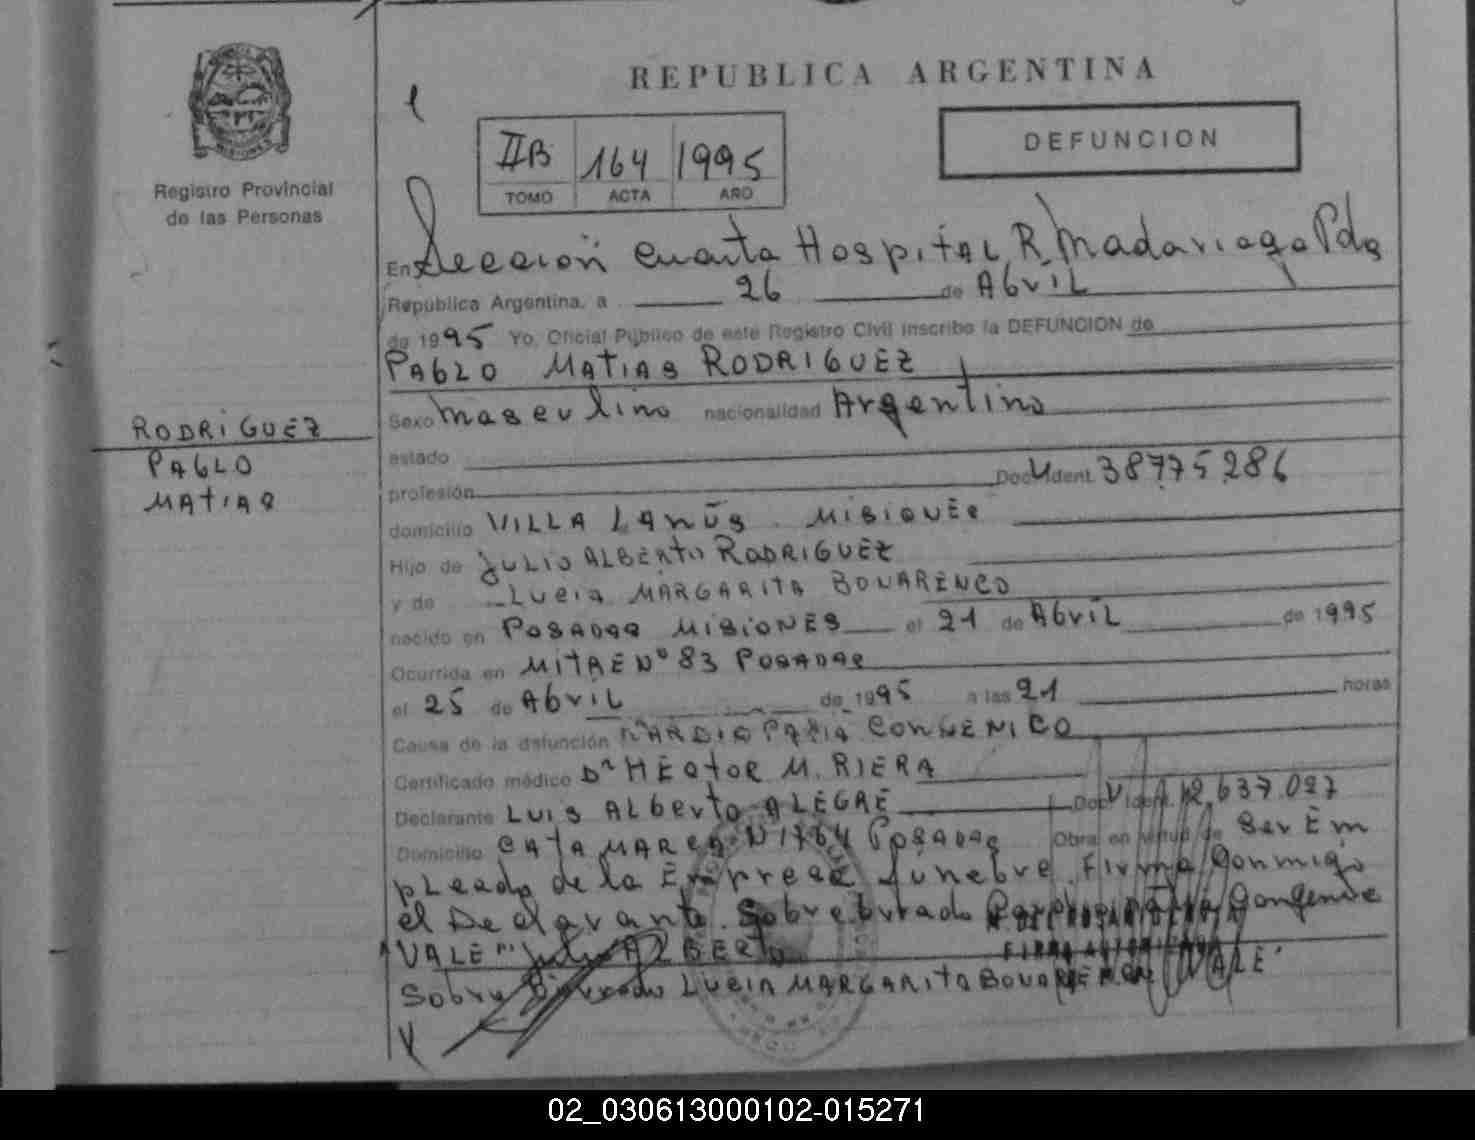 REPUBLICA ARGENTINA
DEFUNCION
IIB 164 1995
TOMO ACTA AÑO
Registro Provincial
de las Personas
En Sección Cuarta Hospital R. Madariaga Pdas
República Argentina, a 26 de Abril
de 1995 Yo, Oficial Público de este Registro Civil inscribo la DEFUNCION de
PABLO MATIAS RODRIGUEZ
Sexo Masculino nacionalidad Argentino
estado
profesión Doc. Ident. 38775286
domicilio VILLA LANÚS. MISIONES
Hijo de JULIO ALBERTO RODRIGUEZ
y de LUCIA MARGARITA BONARENCO
nacido en POSADAS MISIONES el 21 de Abril de 1995
Ocurrida en MITRE Nº 83 POSADAS
el 25 de Abril de 1995 a las 21 horas
Causa de la defunción CARDIOPATIA CONGENICO
Certificado médico Dr HÉCTOR M. RIERA
Declarante LUIS ALBERTO ALEGRE Doc. Ident. 12.637.027
Domicilio CATAMARCA N 1764 POSADAS Obra en virtud de Ser Em
pleado de la Empresa fúnebre. Firma Conmigo
el Declarante. Sobreborrado
VALE" Julio ALBERTO
Sobre Borrado LUCIA MARGARITA BONARENCO VALE"
RODRIGUEZ
PABLO
MATIAS
02_030613000102-015271